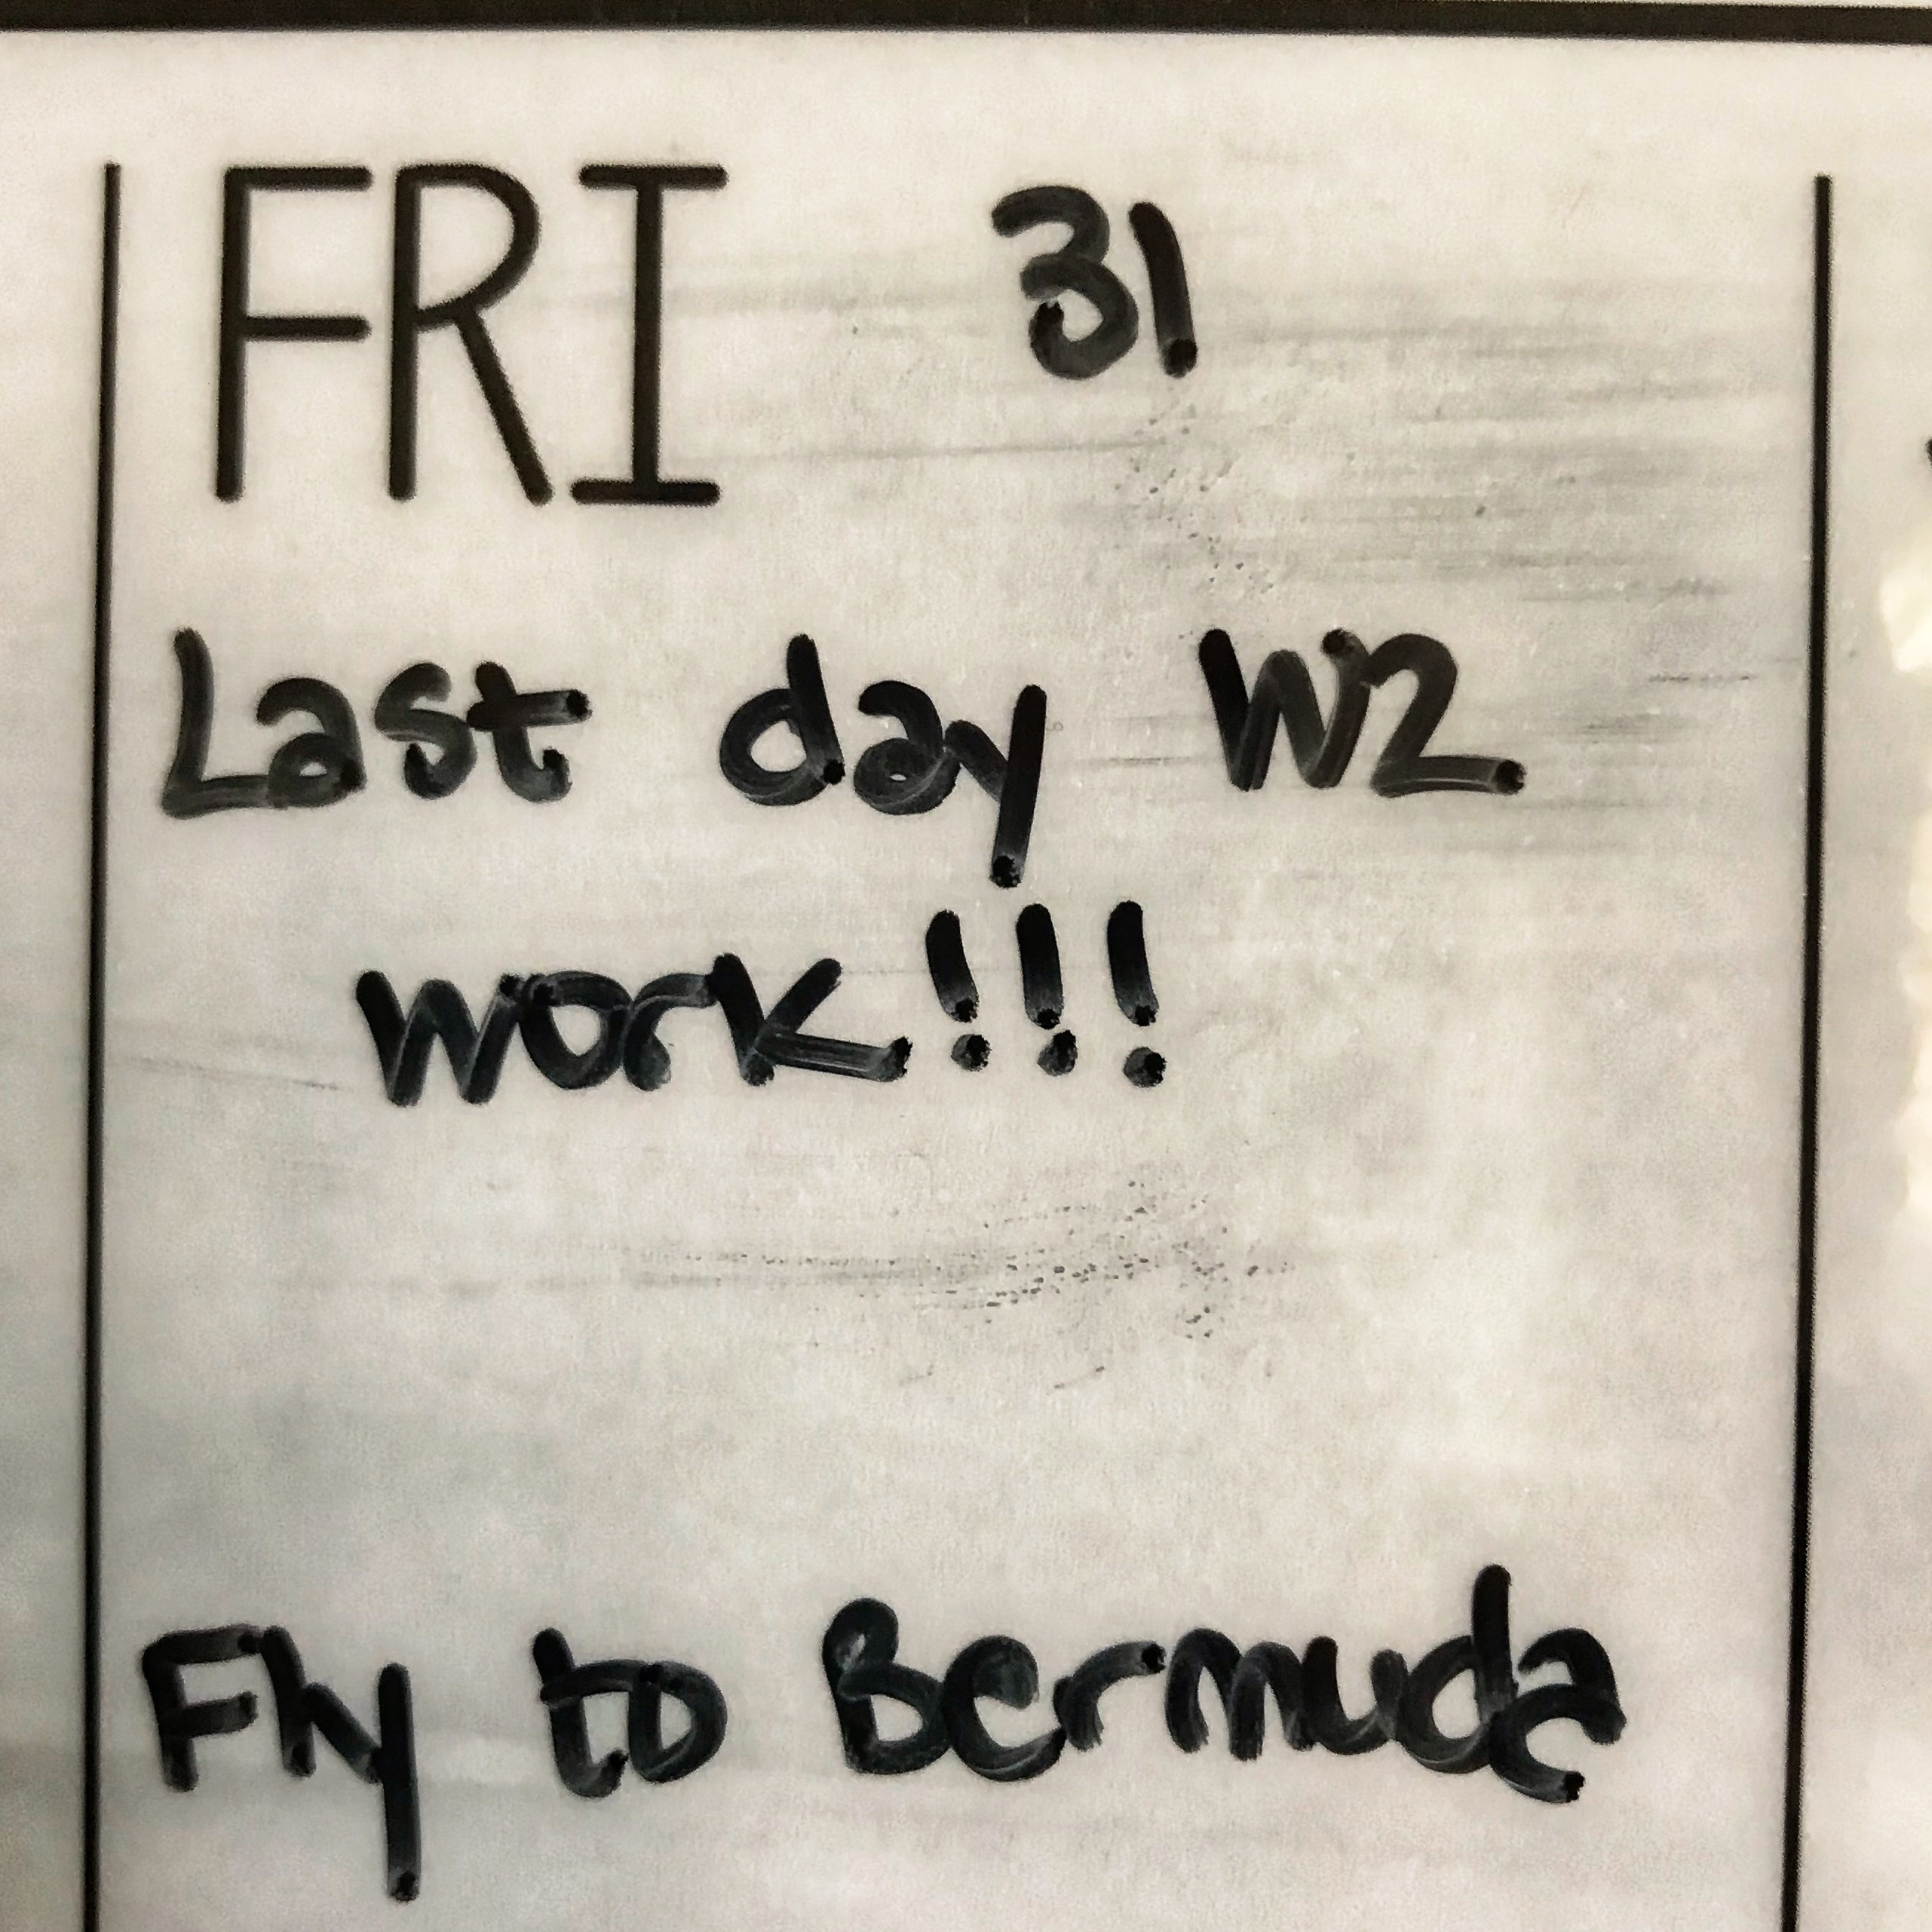 FRI 31
Last day W2
work!!!
Fly to Bermuda